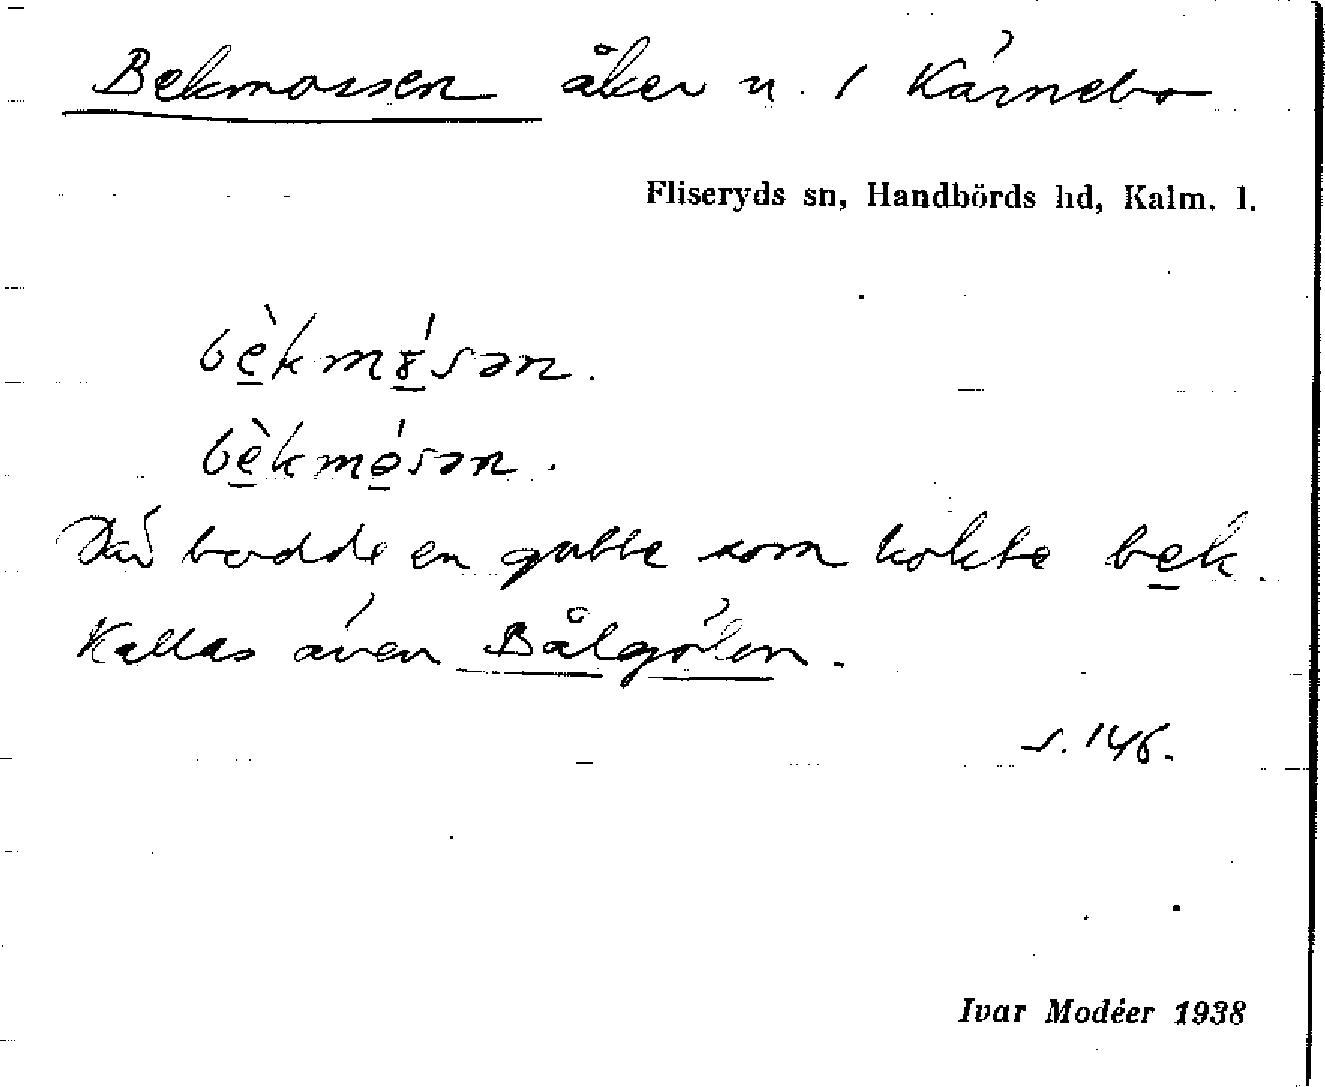 Bekmossen åker n. 1 Kärnebo
Fliseryds sn, Handbörds hd, Kalm. l.
bèkmɤ́sən.
bèkmǿsən.
Där bodde en gubbe som kokte bek.
Kallas även Bålgölen.
s. 146.
Ivar Modéer 1938